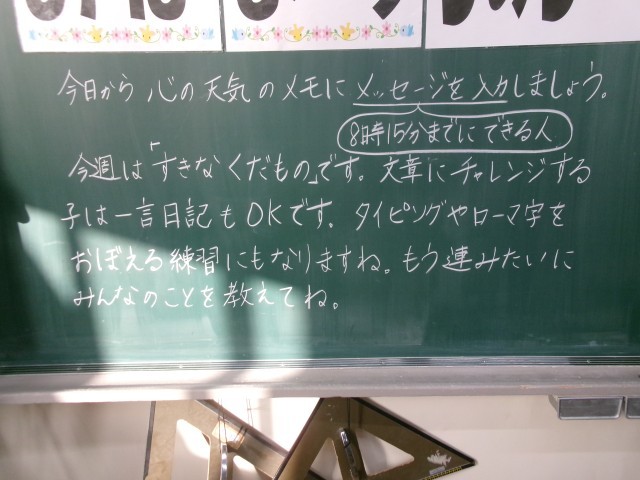 今日から心の天気のメモにメッセージを入力しましょう。
8時15分までにできる人
今週は「すきなくだもの」です。文章にチャレンジする
子は一言日記もOKです。タイピングやローマ字を
おぼえる練習にもなりますね。もう連みたいに
みんなのことを教えてね。